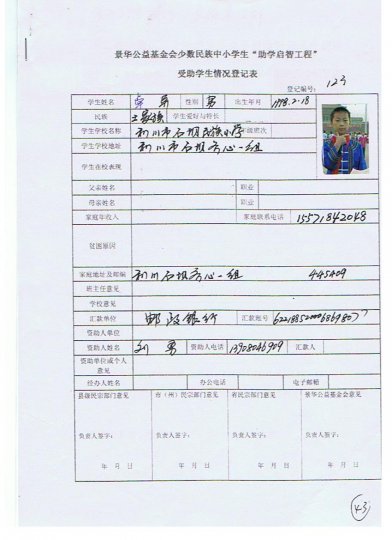 景华公益基金会少数民族中小学生“助学启智工程”
受助学生情况登记表
登记编号: 123
学生姓名 性别 男 出生年月 1998.2.18
民族 土家族 学生爱好与特长
学生学校名称 利川市石坝民族小学 年级班次
学生学校地址 利川市石坝齐心一组
学生在校表现
父亲姓名 职业
母亲姓名 职业
家庭年收入 家庭联系电话 15571842048
贫困原因
家庭地址及邮编 利川石坝齐心一组 445409
班主任意见
学校意见
汇款单位 邮政银行 汇款账号
资助人单位
资助人姓名 刘勇 资助人电话 13908046909 汇款人
资助单位或个人意见
经办人姓名 办公电话 电子邮箱
县级民宗部门意见 市(州)民宗部门意见 省民宗部门意见 景华公益基金会意见
负责人签字: 负责人签字: 负责人签字: 负责人签字:
年 月 日 年 月 日 年 月 日 年 月 日
43